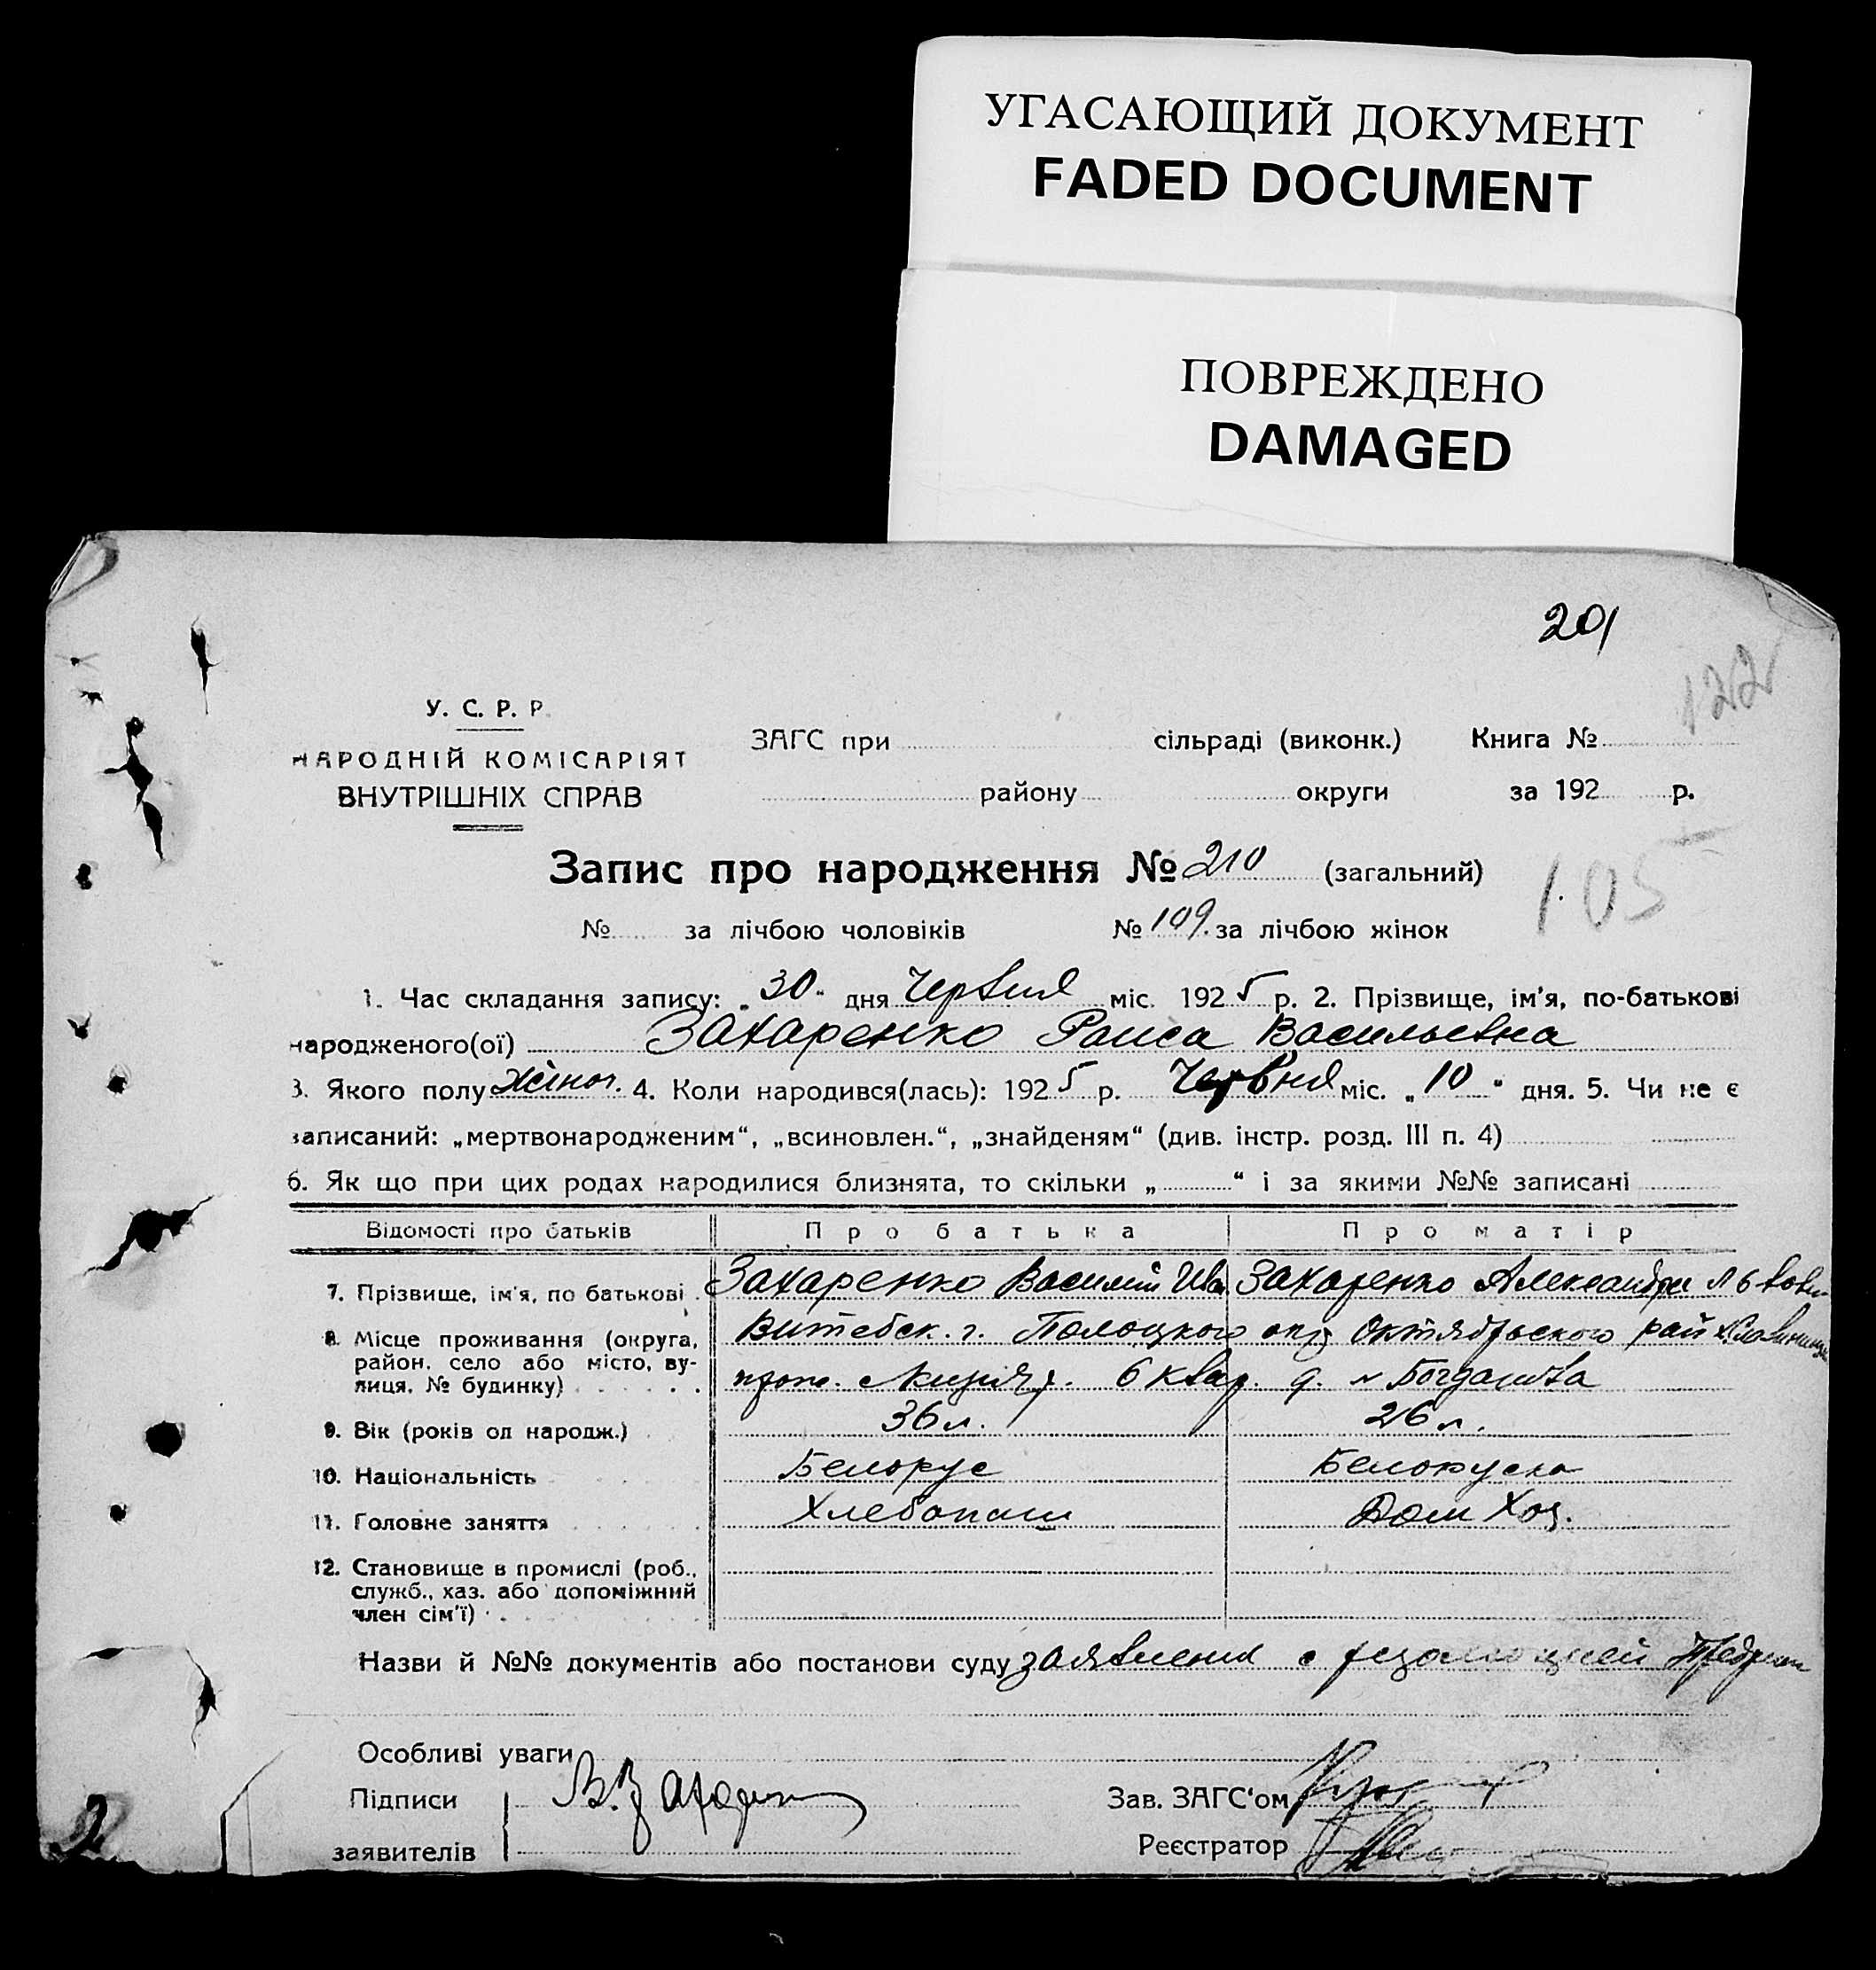 УГАСАЮЩИЙ ДОКУМЕНТ
FADED DOCUMENT
ПОВРЕЖДЕНО
DAMAGED
201
122
У. С. Р. Р.
НАРОДНІЙ КОМІСАРІЯТ
ВНУТРІШНІХ СПРАВ
ЗАГС при сільраді (виконк.) Книга №
району округи за 192 р.
Запис про народження № 210 (загальний)
105
№ за лічбою чоловіків № 109. за лічбою жінок
1. Час складання запису: „30“ дня Червня міс. 1925 р. 2. Прізвище, ім'я, по-батькові
народженого(ої) Захаренко Раиса Васильевна
3. Якого полу жіноч. 4. Коли народився(лась): 1925 р. Червня міс. „10“ дня. 5. Чи не є
записаний: „мертвонародженим“, „всиновлен.“, „знайденям“ (див. інстр. розд. III п. 4)
6. Як що при цих родах народилися близнята, то скільки „ “ і за якими №№ записані
Відомості про батьків Про батька Про матір
7. Прізвище, ім'я, по батькові Захаренко Василий Ив. Захаренко Александра Львовн
8. Місце проживання (округа, район, село або місто, вулиця, № будинку) Витебск. г. Полоцкого окр Октябрьского рай
6 квар. д. Богданова
9. Вік (років од народж.) 36 л. 26 л.
10. Національність Белорус Белоруска
11. Головне заняття Хлебопаш Дом Хоз.
12. Становище в промислі (роб.,
служб., хаз. або допоміжний
член сім'ї)
Назви й №№ документів або постанови суду заявления с резолюцией
Особливі уваги
Підписи В. Захарен
заявителів
Зав. ЗАГС'ом
Реєстратор